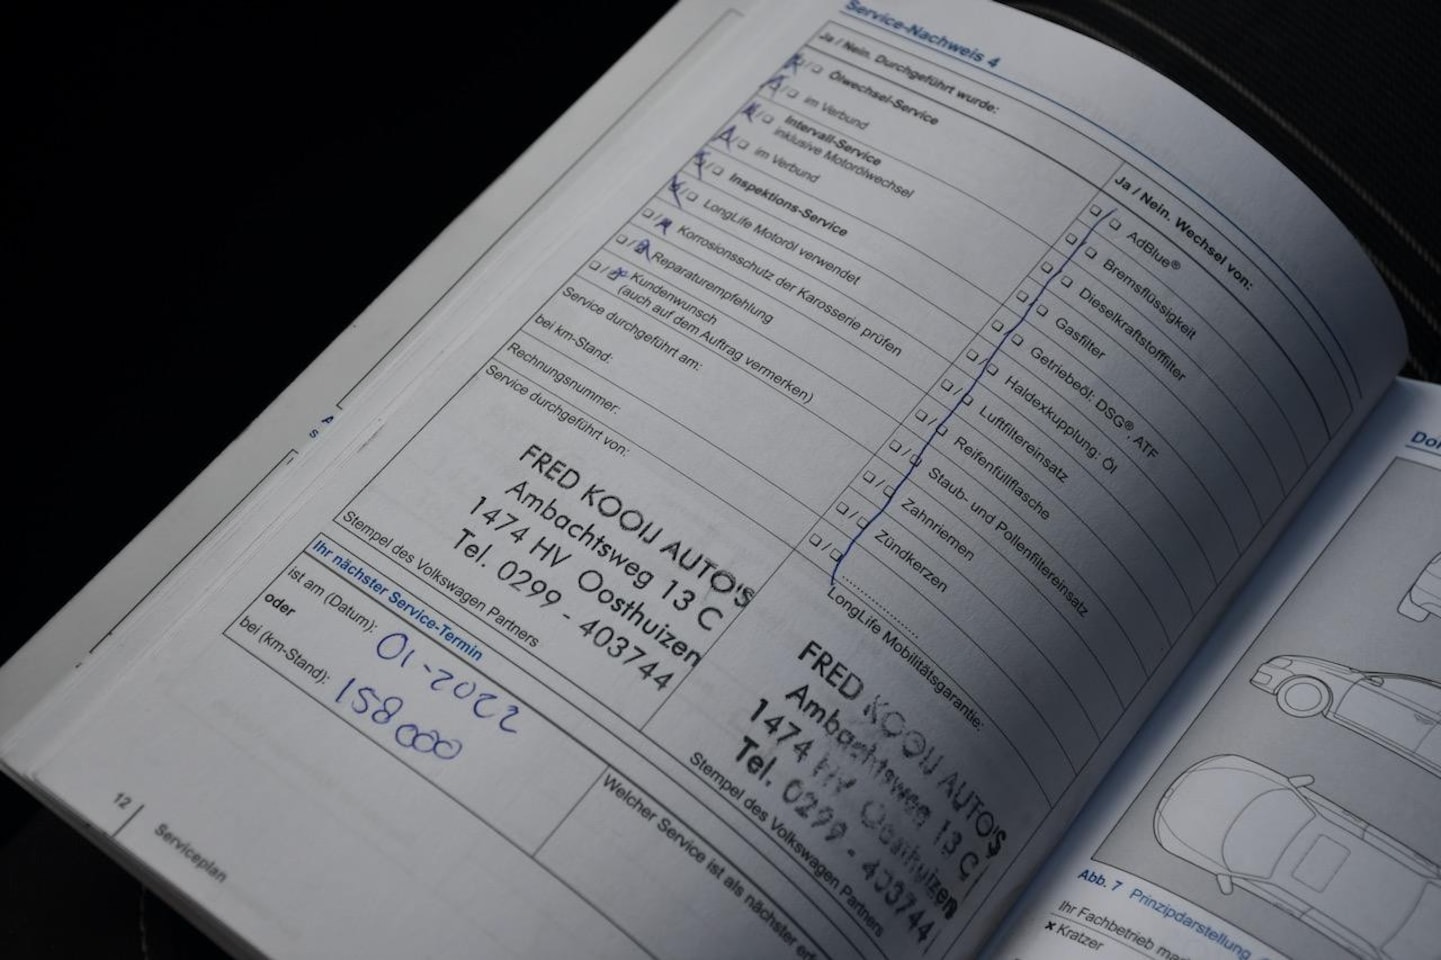 Service-Nachweis 4
Ja / Nein. Durchgeführt wurde:
Ölwechsel-Service
im Verbund
Intervall-Service
inklusive Motorölwechsel
im Verbund
Inspektions-Service
LongLife Motoröl verwendet
Korrosionsschutz der Karosserie prüfen
Reparaturempfehlung
Kundenwunsch
(auch auf dem Auftrag vermerken)
Service durchgeführt am:
bei km-Stand:
Rechnungsnummer:
Service durchgeführt von:
FRED KOOIJ AUTO'S
Ambachtsweg 13 C
1474 HV Oosthuizen
Tel. 0299 - 403744
Stempel des Volkswagen Partners
Ja / Nein. Wechsel von:
AdBlue®
Bremsflüssigkeit
Dieselkraftstofffilter
Gasfilter
Getriebeöl: DSG®, ATF
Haldexkupplung: Öl
Luftfiltereinsatz
Reifenfüllflasche
Staub- und Pollenfiltereinsatz
Zahnriemen
Zündkerzen
LongLife Mobilitätsgarantie:
FRED KOOIJ AUTO'S
Ambachtsweg 13 C
1474 HV Oosthuizen
Tel. 0299 - 403744
Stempel des Volkswagen Partners
Ihr nächster Service-Termin
ist am (Datum): 01-2022
oder
bei (km-Stand): 158000
Welcher Service ist als nächster
12
Serviceplan
Abb. 7 Prinzipdarstellung
Ihr Fachbetrieb
x Kratzer